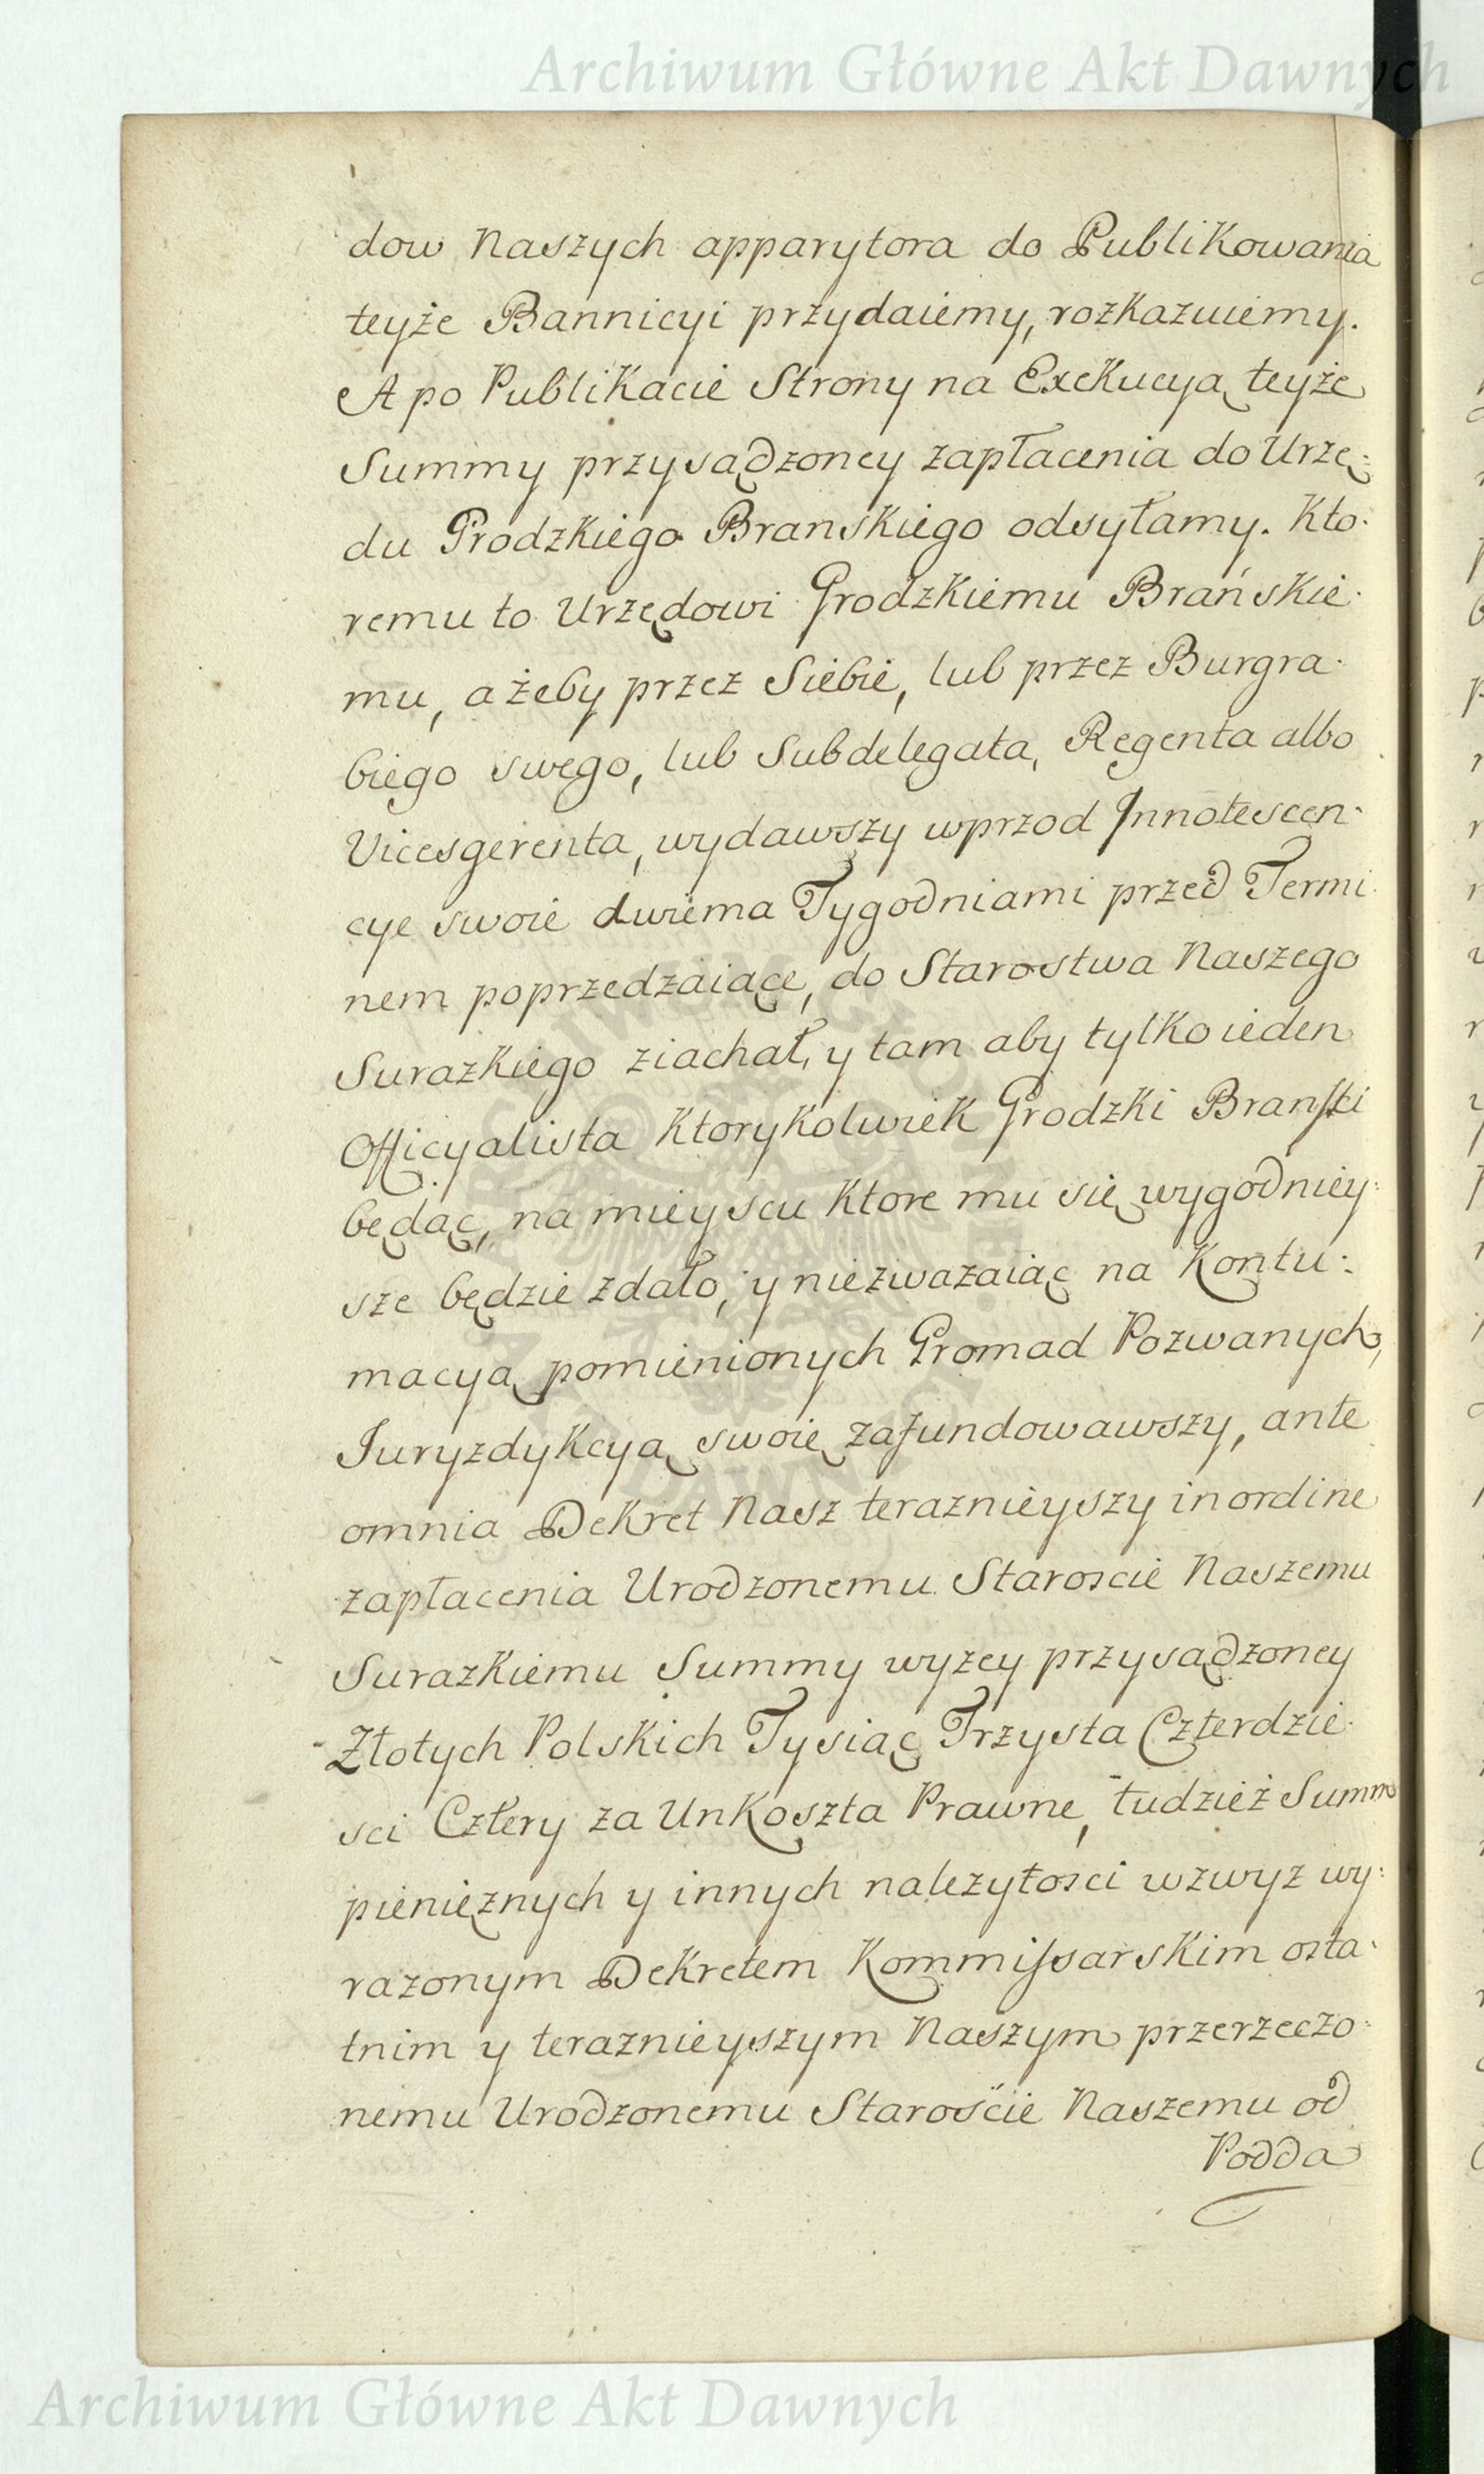 Archiwum Główne Akt Dawnych
dow Naszych apparytora do Publikowania
teyże Bannicyi przydaiemy, rozkazuiemy.
A po Publikacie Strony na Exekucyą teyże
Summy przysądzoney zapłacenia do Urzę:
du Grodzkiego Branskiego odsyłamy. Kto.
remu to Urzędowi Grodzkiemu Brańskie.
mu, ażeby przez Siebie, lub przez Burgra.
biego swego, lub Subdelegata, Regenta albo
Vicesgerenta, wydawszy wprzod Innotescen.
cye swoie dwiema Tygodniami przed Termi.
nem poprzedzaiące, do Starostwa Naszego
Surazkiego ziachał, y tam aby tylko ieden
Officyalista Ktorykolwiek Grodzki Branſki
będąc, na mieyscu Ktore mu się wygodniey:
sze będzie zdało, y nieziważaiąc na Kontu:
macyą pomienionych Gromad Pozwanych,
Iuryzdykcyą swoię zafundowawszy, ante
omnia Dekret Nasz teraznieyszy in ordine
zapłacenia Urodzonemu Staroscie Naszemu
Surazkiemu Summy wyzey przysądzoney
Złotych Polskich Tysiąc Trzysta Czterdzie.
sci Cztery za Unkoszta Prawne, tudzież Summ
pieniężnych y innych nalezytosci wzwyz wy:
razonym Dekretem Kommiſsarskim osta.
tnim y teraznieyszym Naszym przerzeczo.
nemu Urodzonemu Starościie Naszemu od
Podda
Archiwum Główne Akt Dawnych